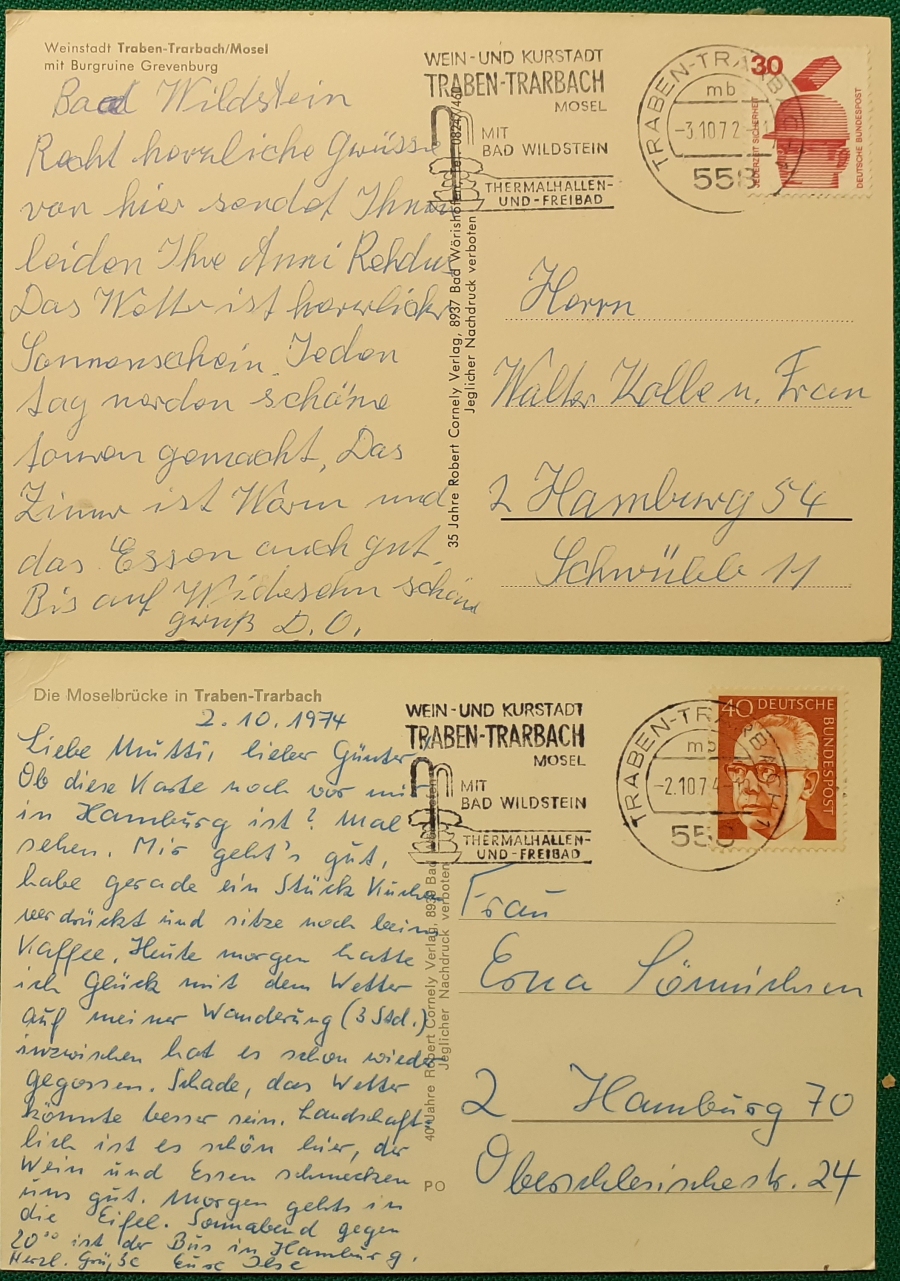 Weinstadt Traben-Trarbach/Mosel
mit Burgruine Grevenburg
Bad Wildstein
Recht herzliche Grüsse
von hier sendet Ihnen
beiden Ihre Anni
Das Wetter ist herrlich
Sonnenschein. Jeden
tag werden schöne
touren gemacht, Das
Zimmer ist Warm und
das Essen auch gut
Bis auf Widesehn schöne
gruß D. O.
WEIN- UND KURSTADT
TRABEN-TRARBACH
MOSEL
MIT
BAD WILDSTEIN
THERMALHALLEN-
UND-FREIBAD
TRABEN-TRARBACH
mb
-3.10.72
558
30
JEDERZEIT SICHERHEIT
DEUTSCHE BUNDESPOST
35 Jahre Robert Cornely Verlag, 8937 Bad Wörishofen, Tel. 08247/460
Jeglicher Nachdruck verboten
Herrn
Walter Kolle u. Frau
2 Hamburg 54
11
Die Moselbrücke in Traben-Trarbach
2.10.1974
Liebe Mutti, lieber Günter
Ob diese Karte noch vor mir
in Hamburg ist? Mal
sehen. Mir geht's gut,
habe gerade ein Stück Kuchen
verdrückt und sitze noch beim
Kaffee. Heute morgen hatte
ich Glück mit dem Wetter
auf meiner Wanderung (3 Std.)
inzwischen hat es schon wieder
gegossen. Schade, das Wetter
könnte besser sein. Landschaft-
lich ist es schön hier, der
Wein und Essen schmecken
uns gut. Morgen gehts in
die Eifel. Sonnabend gegen
20³⁰ ist der Bus in Hamburg.
Herzl. Grüße Eure Ilse
WEIN- UND KURSTADT
TRABEN-TRARBACH
MOSEL
MIT
BAD WILDSTEIN
THERMALHALLEN-
UND-FREIBAD
TRABEN-TRARBACH 1
mb
-2.10.74
558
40 DEUTSCHE
BUNDESPOST
40 Jahre Robert Cornely Verlag, 8939 Bad Wörishofen
Jeglicher Nachdruck verboten
PO
Frau
Erna Sönnichsen
2 Hamburg 70
Oberschlesischestr. 24